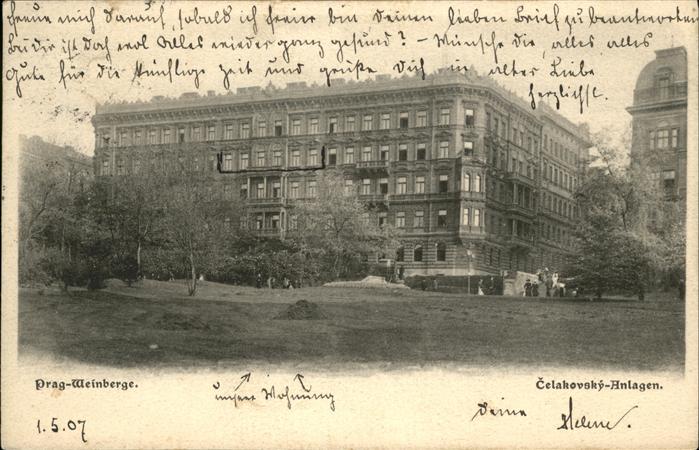 freue mich darauf, sobald ich freier bin Deinen lieben Brief zu beantworten
bei dir ist doch wol Alles wieder ganz gesund? – Wünsche dir, alles alles
Gute für die künftige Zeit und grüße Dich in alter Liebe
herzlichst.
Prag-Weinberge.
Čelakovský-Anlagen.
unsere Wohnung
1.5.07
Deine Helene.